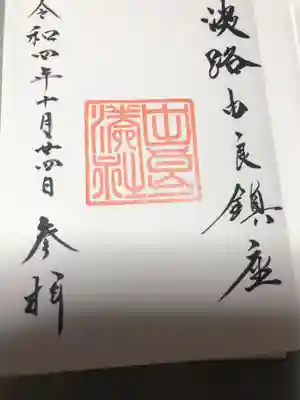 淡路由良鎮座
由良湊神社
令和四年十月廿四日 参拝